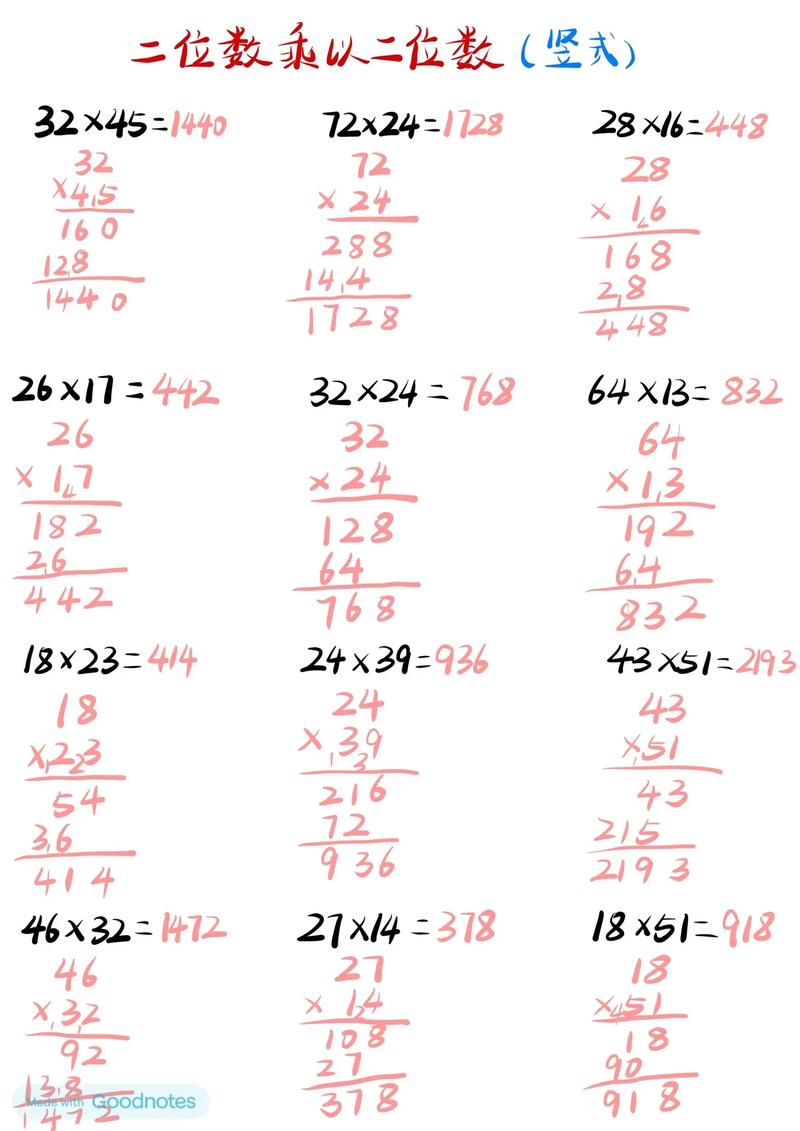 二位数乘以二位数（竖式）
32×45=1440 72×24=1728 28×16=448
32 72 28
×45 ×24 ×16
160 288 168
128 144 28
1440 1728 448
26×17=442 32×24=768 64×13=832
26 32 64
×17 ×24 ×13
182 128 192
26 64 64
442 768 832
18×23=414 24×39=936 43×51=2193
18 24 43
×23 ×39 ×51
54 216 43
36 72 215
414 936 2193
46×32=1472 27×14=378 18×51=918
46 27 18
×32 ×14 ×51
92 108 18
138 27 90
1472 378 918
Made with Goodnotes